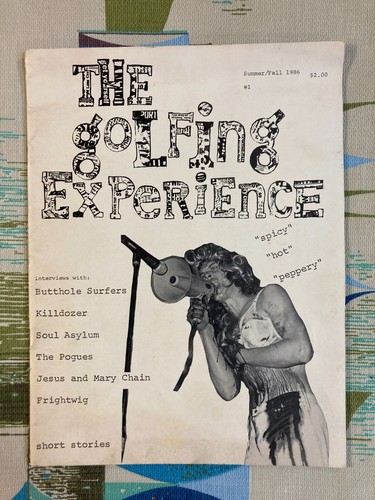 THE
Summer/Fall 1986 $2.00
#1
goLFing
ExPeRiENCE
"spicy"
"hot"
"peppery"
interviews with:
Butthole Surfers
Killdozer
Soul Asylum
The Pogues
Jesus and Mary Chain
Frightwig
short stories